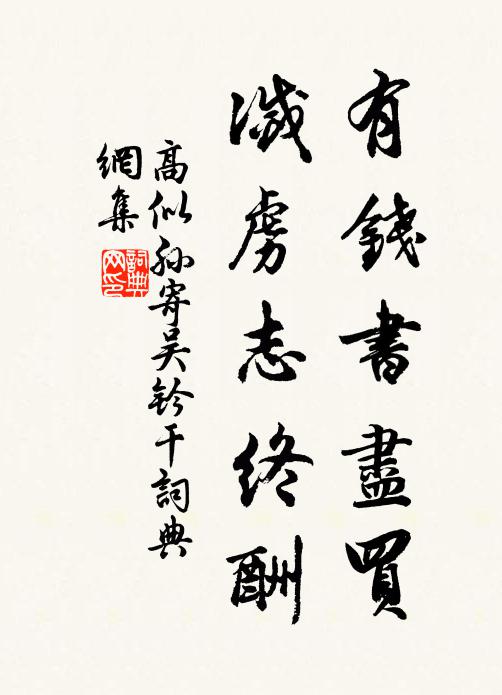 有錢書盡買
滅虜志終酬
高似孫寄吳鈐干詞典
網集
詞典網印